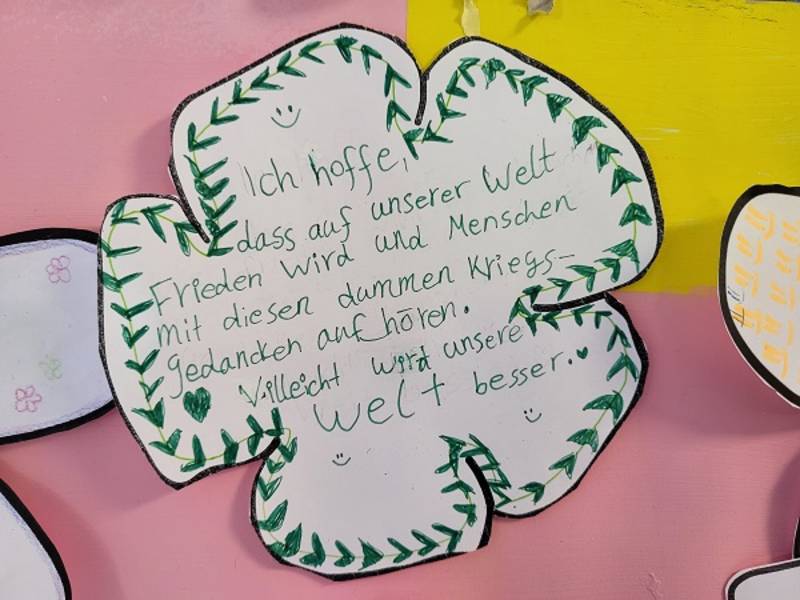 Ich hoffe,
dass auf unserer Welt
Frieden wird und Menschen
mit diesen dummen Kriegs-
gedancken auf hören.
Villeicht wird unsere
Welt besser.